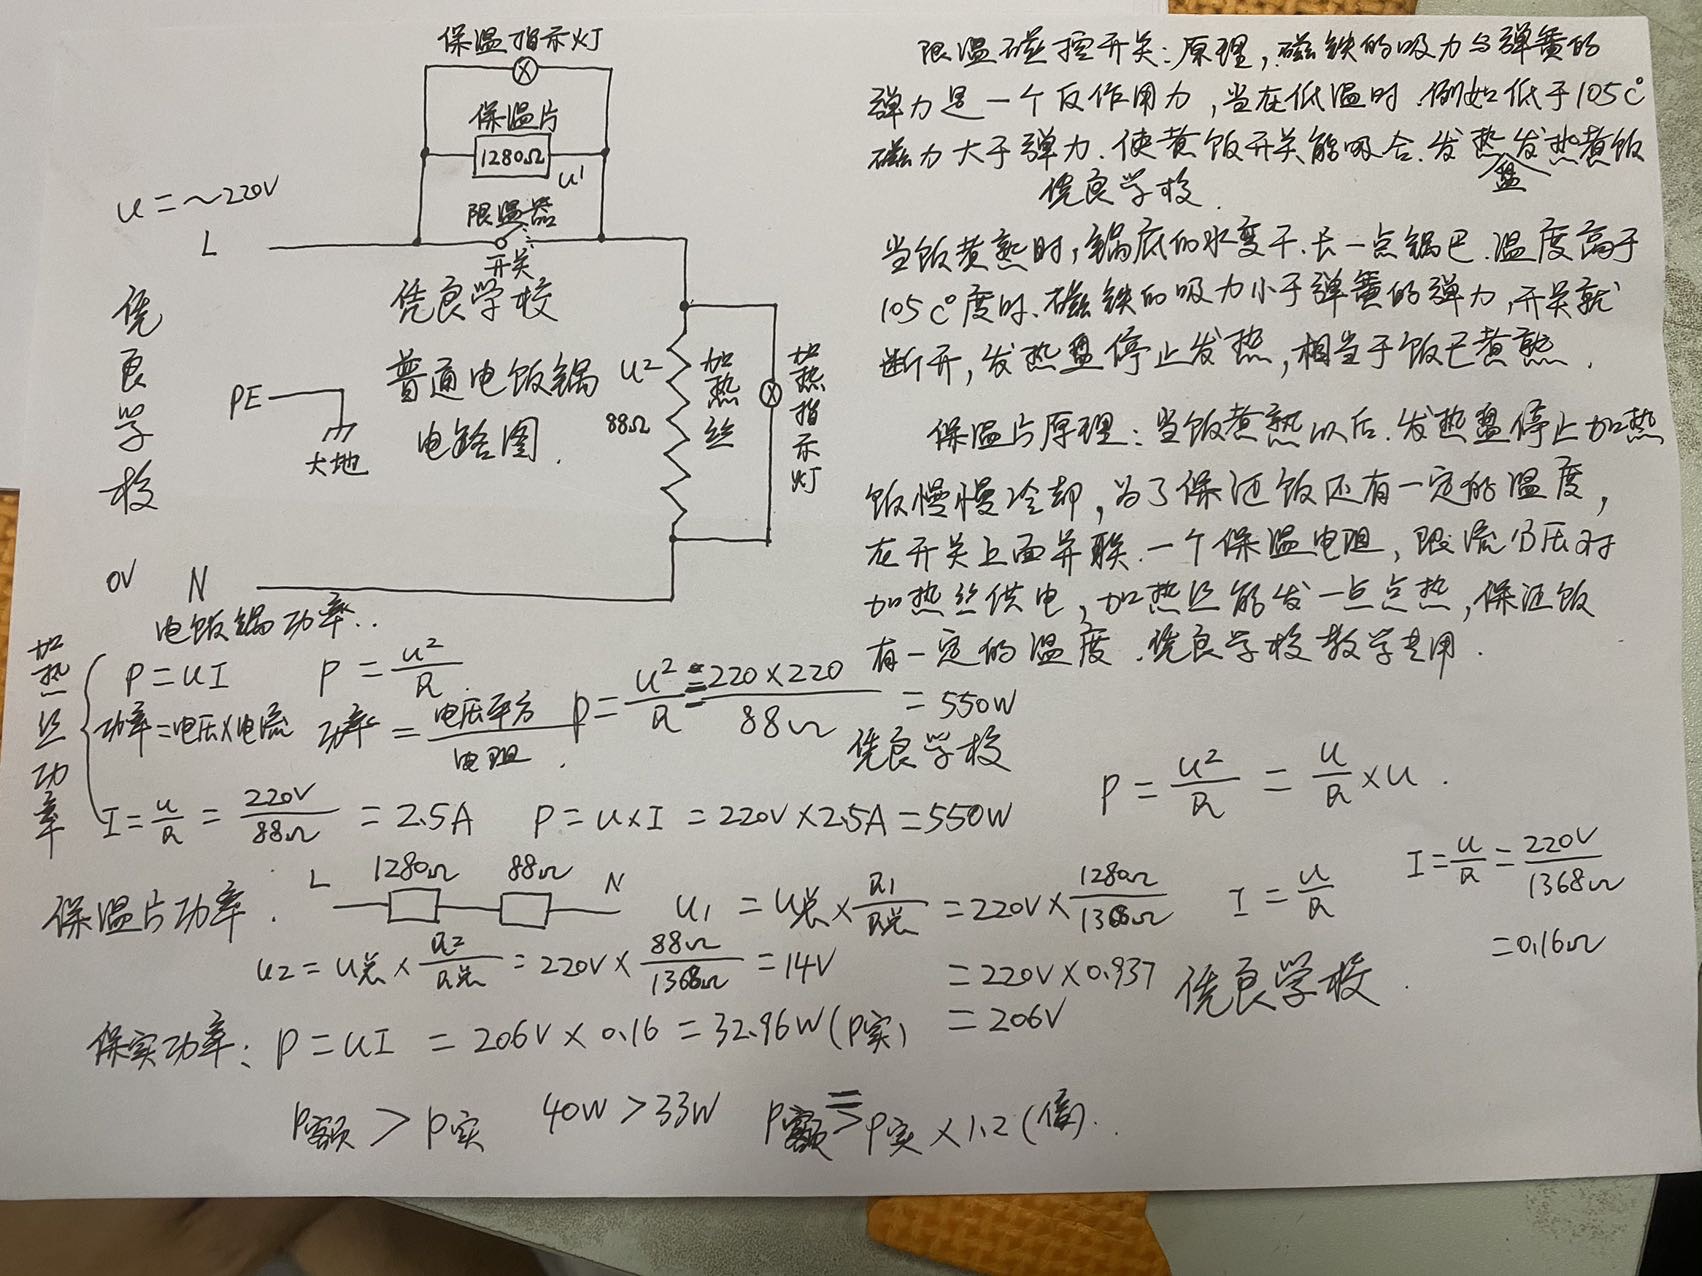 保温指示灯
保温片
1280Ω
u1
限温器
开关
u=~220V
L
凭良学校
凭良学校
普通电饭锅
电路图.
PE
大地
u2
88Ω
加热丝
加热指示灯
0V N
限温磁控开关:原理,磁铁的吸力与弹簧的
弹力是一个反作用力,当在低温时.例如低于105C°
磁力大于弹力.使煮饭开关能吸合.发热盘发热煮饭
凭良学校.
当饭煮熟时,锅底的水变干.长一点锅巴.温度高于
105C°度时.磁铁的吸力小于弹簧的弹力,开关就
断开,发热盘停止发热,相当于饭已煮熟.
保温片原理:当饭煮熟以后.发热盘停止加热
饭慢慢冷却,为了保证饭还有一定的温度,
在开关上面并联.一个保温电阻,限流分压对
加热丝供电,加热丝能发一点点热,保证饭
有一定的温度.凭良学校教学专用.
电饭锅功率..
加热丝功率
P=uI P=u²/R
功率=电压×电流 功率=电压平方/电阻.
P=u²/R=220×220/88Ω=550W
凭良学校
I=u/R=220V/88Ω=2.5A P=u×I=220V×2.5A=550W
P=u²/R=u/R×u.
保温片功率.
L 1280Ω 88Ω N
u1=u总×R1/R总=220V×1280Ω/1368Ω
=220V×0.937
=206V
I=u/R
I=u/R=220V/1368Ω
=0.16Ω
u2=u总×R2/R总=220V×88Ω/1368Ω=14V
凭良学校.
保实功率:P=uI=206V×0.16=32.96W(P实)
P额>P实 40W>33W P额≥P实×1.2(倍)..